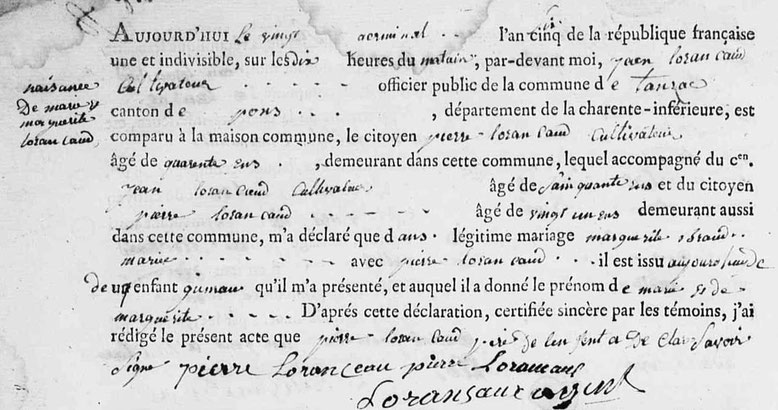 AUJOURD'HUI Le vingt germinal l'an cinq de la république française
une et indivisible, sur les dix heures du matain, par-devant moi, jean loran caud
Cultivateur officier public de la commune de tanzac
canton de pons, département de la charente-inférieure, est
comparu à la maison commune, le citoyen pierre loran caud Cultivateur
âgé de quarente ens, demeurant dans cette commune, lequel accompagné du cen.
jean loran caud Cultivateur âgé de sainquante ens et du citoyen
pierre loran caud âgé de vingt un ens demeurant aussi
dans cette commune, m'a déclaré que dans légitime mariage marguerite
mariée avec pierre loran caud il est issu aujourdhui de
deux enfant gumau qu'il m'a présenté, et auquel il a donné le prénom de marie et de
marguerite D'après cette déclaration, certifiée sincère par les témoins, j'ai
rédigé le présent acte que pierre loran caud pere de len fent a De Clare Savoir
Signe pierre Loranceau pierre
naisance
De marie et
marguerite
loran caud